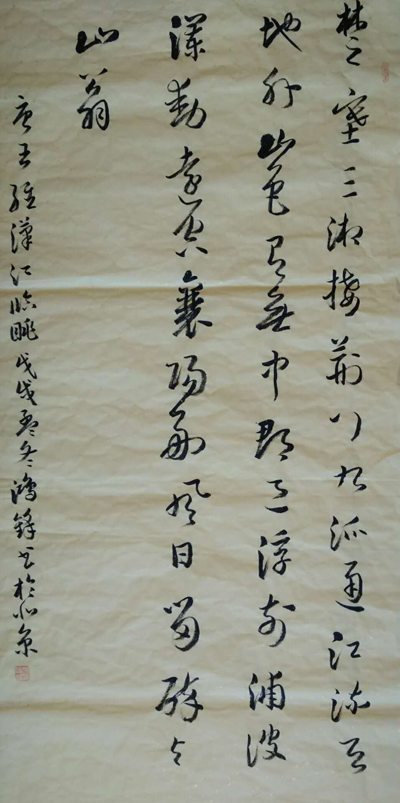 楚塞三湘接荆门九派通江流天
地外山色有无中郡邑浮前浦波
澜动远空襄阳好风日留醉与
山翁
唐王维汉江临眺戊戌孟冬鸿锋书于北京